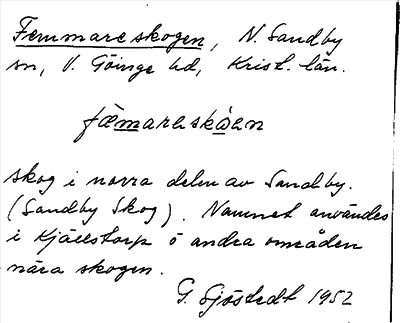 Femmareskogen, N. Sandby
sn, V. Göinge hd, Krist. län.
fæmareskåen
skog i norra delen av Sandby.
(Sandby Skog). Namnet användes
i Kjällstorp o andra områden
nära skogen.
G. Sjöstedt 1952